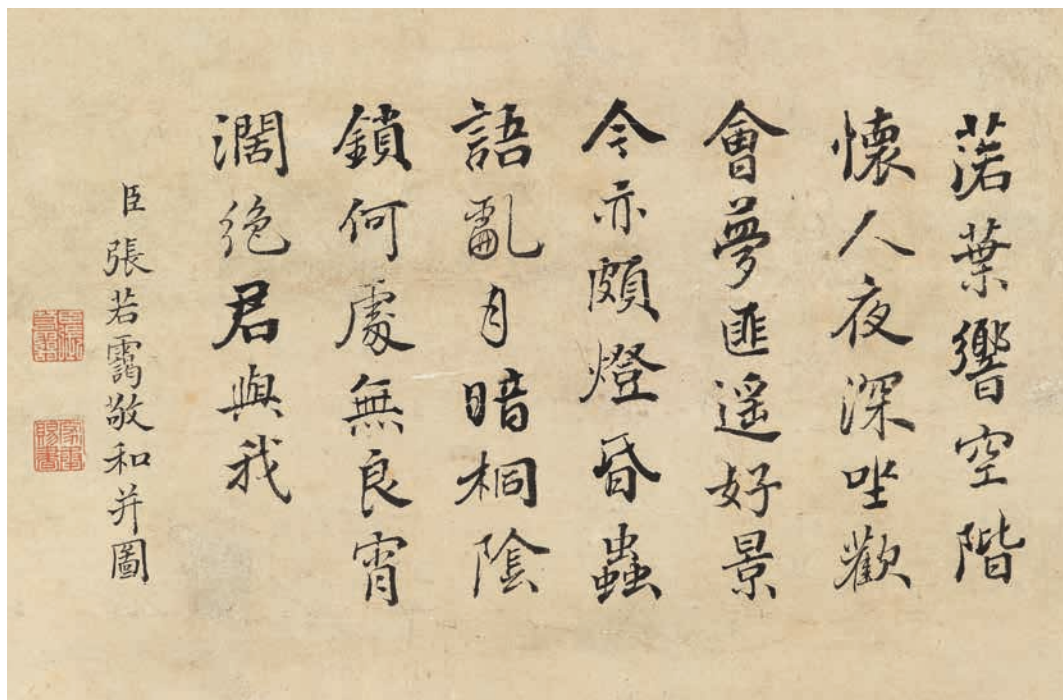 落葉響空階
懷人夜深坐歡
會夢匪遥好景
今亦頗燈昏蟲
語亂月暗桐陰
鎖何處無良宵
濶絶君與我
臣張若靄敬和并圖